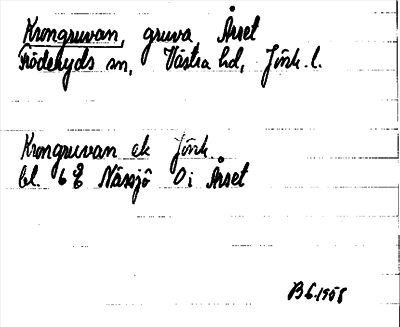 Krongruvan, gruva Årset
Fröderyds sn, Västra hd, Jönk. l.
Krongruvan ek Jönk.
bl. 6 E Nässjö O i Årset
B6.1958